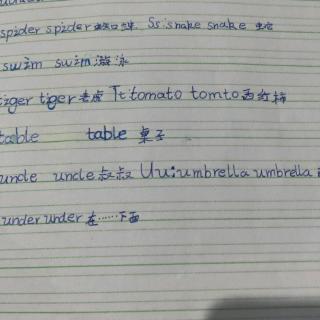 spider spider 蜘蛛 Ss: snake snake 蛇
swim swim 游泳
tiger tiger 老虎 Tt: tomato tomto 西红柿
table table 桌子
uncle uncle 叔叔 Uu: umbrella umbrella
under under 在……下面